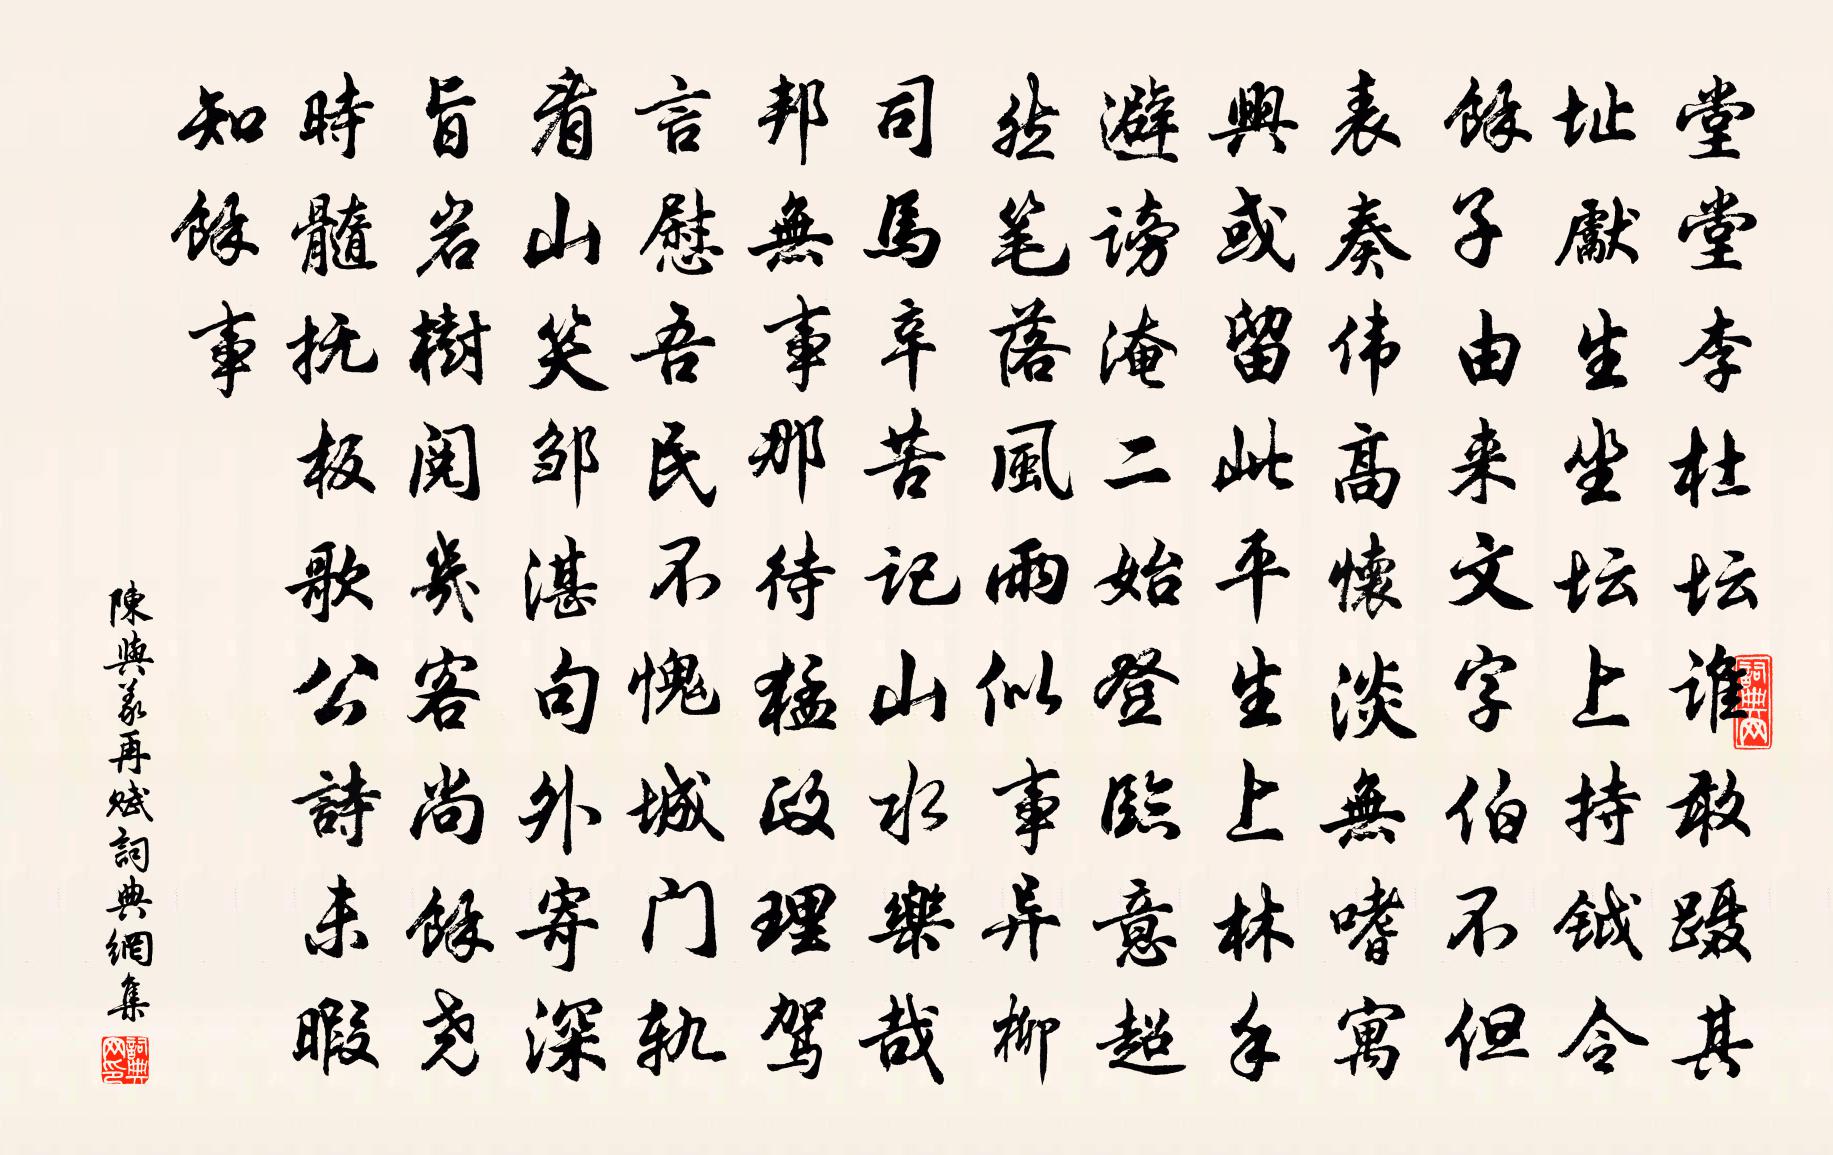 堂堂李杜坛谁敢蹑其
址獻生坐坛上持钺令
餘子由来文字伯不但
表奏伟高懷淡無嗜寓
興或留此平生上林手
避謗淹二始登臨意超
然笔落風雨似事异柳
司馬辛苦记山水樂哉
邦無事那待猛政理駕
言慰吾民不愧城门轨
看山笑邹湛句外寄深
旨岩樹阅幾客尚餘尧
時髓抚板歌公詩未暇
知餘事
陳與義再赋詞典網集
詞典网